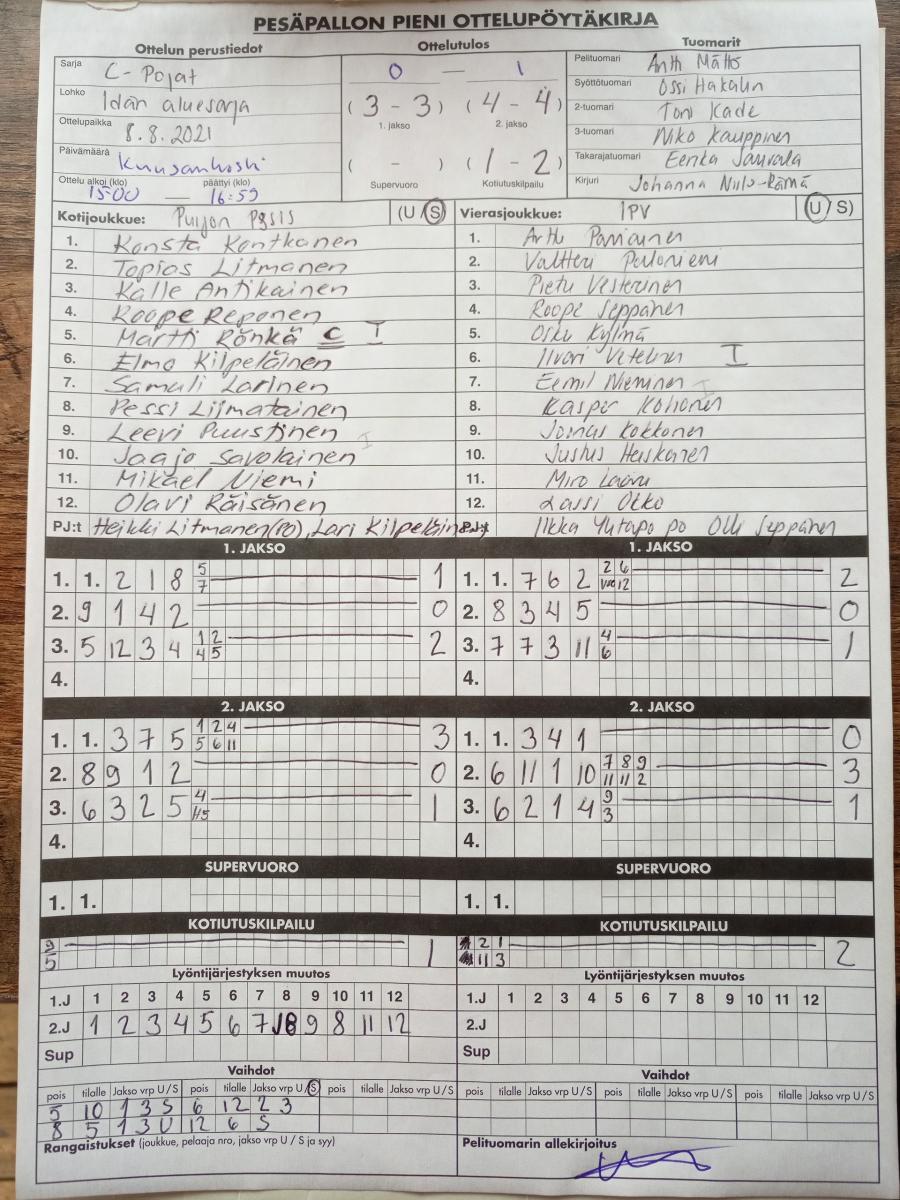 PESÄPALLON PIENI OTTELUPÖYTÄKIRJA
Ottelun perustiedot Ottelutulos Tuomarit
Sarja C-Pojat 0 — 1 Pelituomari Antti Mättö
Lohko Idän aluesarja Syöttötuomari Ossi Hakalin
(3 - 3) (4 - 4)
Ottelupaikka 8.8.2021 1. jakso 2. jakso 2-tuomari Toni Kade
Päivämäärä 3-tuomari Niko Kauppinen
( - ) (1 - 2) Takarajatuomari
Ottelu alkoi (klo) päättyi (klo) Supervuoro Kotiutuskilpailu Kirjuri Johanna Niilo-Rämä
15:00 — 16:59
Kotijoukkue: Puijon Pesis (U / S) Vierasjoukkue: IPV (U / S)
1. Konsta Kontkanen 1. Arttu
2. Topias Litmanen 2. Valtteri
3. Kalle Antikainen 3. Pietu Vesterinen
4. Roope Reponen 4. Roope Seppänen
5. Martti Rönkä C I 5. Osku Kylmä
6. Elmo Kilpeläinen 6. Iivari I
7. Samuli Larinen 7. Eemil Nieminen
8. Pessi Liimatainen 8. Kasper Kohonen
9. Leevi Puustinen 9. Joonas Kokkonen
10. Jaajo Savolainen 10. Justus Heiskanen
11. Mikael Niemi 11. Miro
12. Olavi Räisänen 12. Lassi Okko
PJ:t Heikki Litmanen(PO), Lari Kilpeläinen PJ:t Ilkka po Olli Seppänen
1. JAKSO 1. JAKSO
1. 1. 2 1 8 5 7 1 1. 1. 7 6 2 2 6 12 2
2. 9 1 4 2 0 2. 8 3 4 5 0
3. 5 12 3 4 1 2 4 5 2 3. 7 7 3 11 4 6 1
4. 4.
2. JAKSO 2. JAKSO
1. 1. 3 7 5 1 2 4 5 6 11 3 1. 1. 3 4 1 0
2. 8 9 1 2 0 2. 6 11 1 10 7 8 9 11 11 2 3
3. 6 3 2 5 4 1 3. 6 2 1 4 9 3 1
4. 4.
SUPERVUORO SUPERVUORO
1. 1. 1. 1.
KOTIUTUSKILPAILU KOTIUTUSKILPAILU
9 5 1 2 1 11 3 2
Lyöntijärjestyksen muutos Lyöntijärjestyksen muutos
1.J 1 2 3 4 5 6 7 8 9 10 11 12 1.J 1 2 3 4 5 6 7 8 9 10 11 12
2.J 1 2 3 4 5 6 7 10 9 8 11 12 2.J
Sup Sup
Vaihdot Vaihdot
pois tilalle Jakso vrp U / S pois tilalle Jakso vrp U / S pois tilalle Jakso vrp U / S pois tilalle Jakso vrp U / S pois tilalle Jakso vrp U / S pois tilalle Jakso vrp U / S
5 10 1 3 S 6 12 2 3
8 5 1 3 U 12 6 S
Rangaistukset (joukkue, pelaaja nro, jakso vrp U / S ja syy) Pelituomarin allekirjoitus